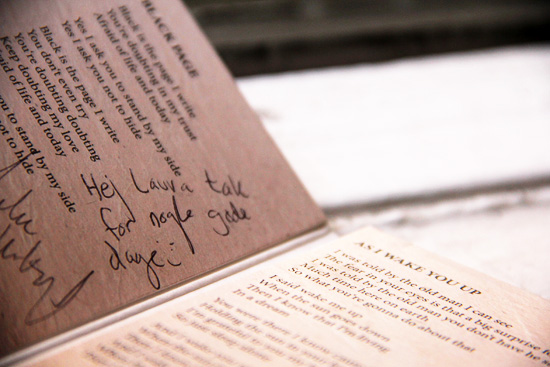 BLACK PAGE
Black is the page I write
You're doubting in my trust
Afraid of life and today
Yes I ask you to stand by my side
Yes I ask you not to hide
Black is the page I write
You don't even try
You're doubting doubting
Keep doubting my love
of life and today
you to stand by my side
not to hide
Hej Laura tak
for nogle gode
dage
AS I WAKE YOU UP
I was told by the old man I can see
The fear in your eyes is that a big surprise
I was told by the old man you don't have
Much time here on earth
So what you're gonna do about that
I said wake me up
When the sun goes down
Then I know that I'm living
Is a dream
You were there I know
Holding the sun in your